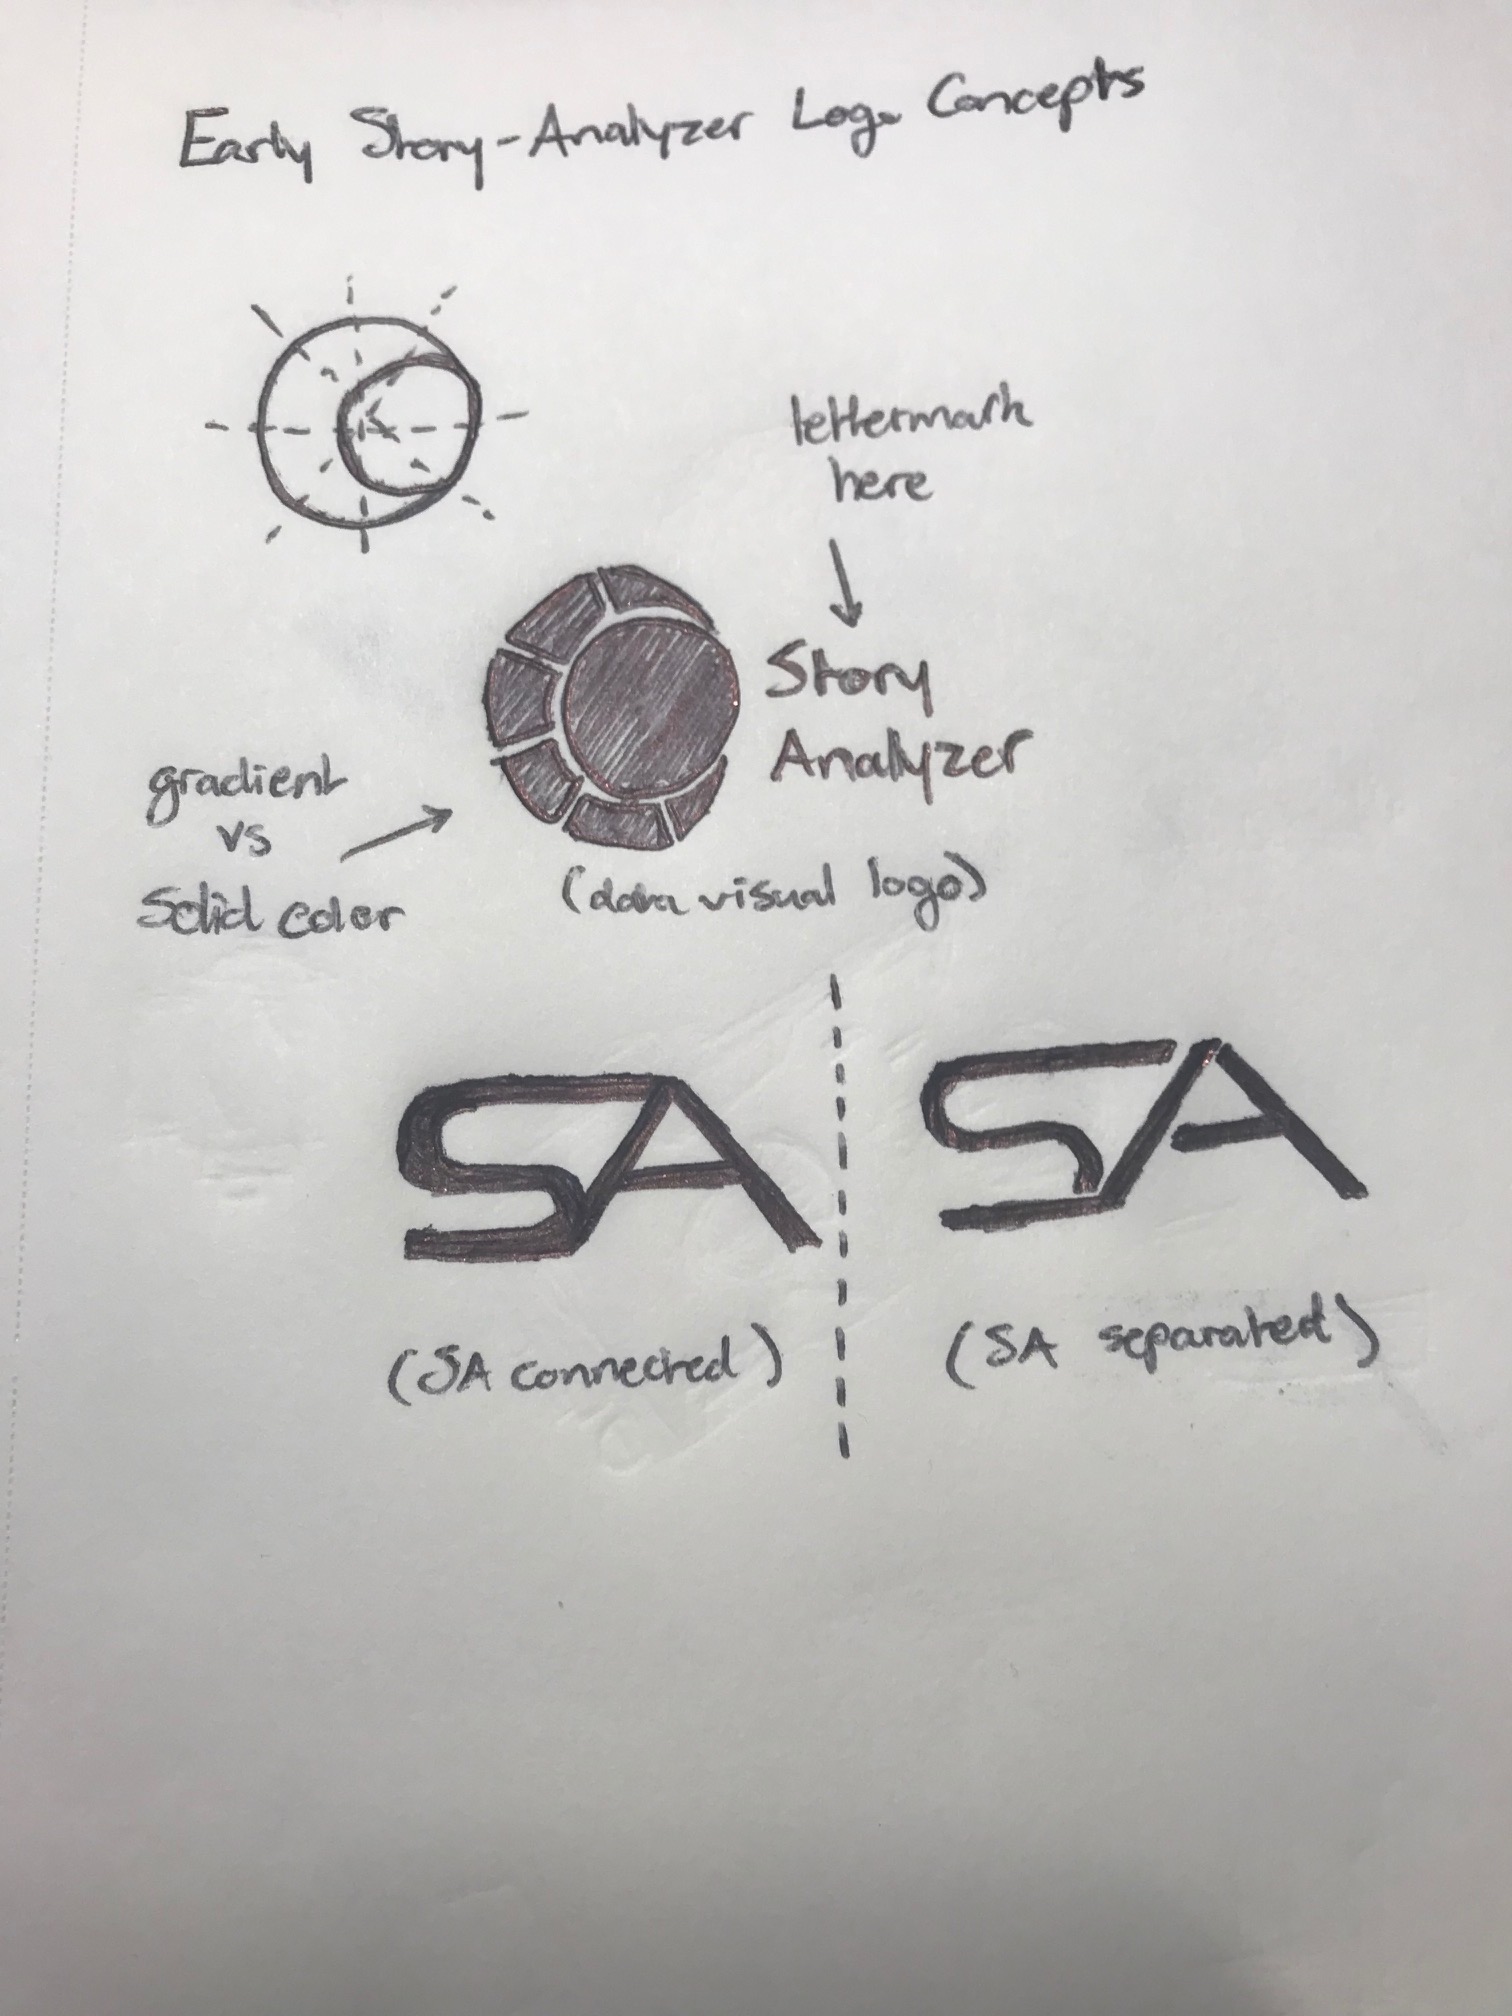 Early Story-Analyzer Logo Concepts
lettermark
here
Story
Analyzer
gradient
vs
Solid color
(data visual logo)
SA
SA
(SA connected)
(SA separated)